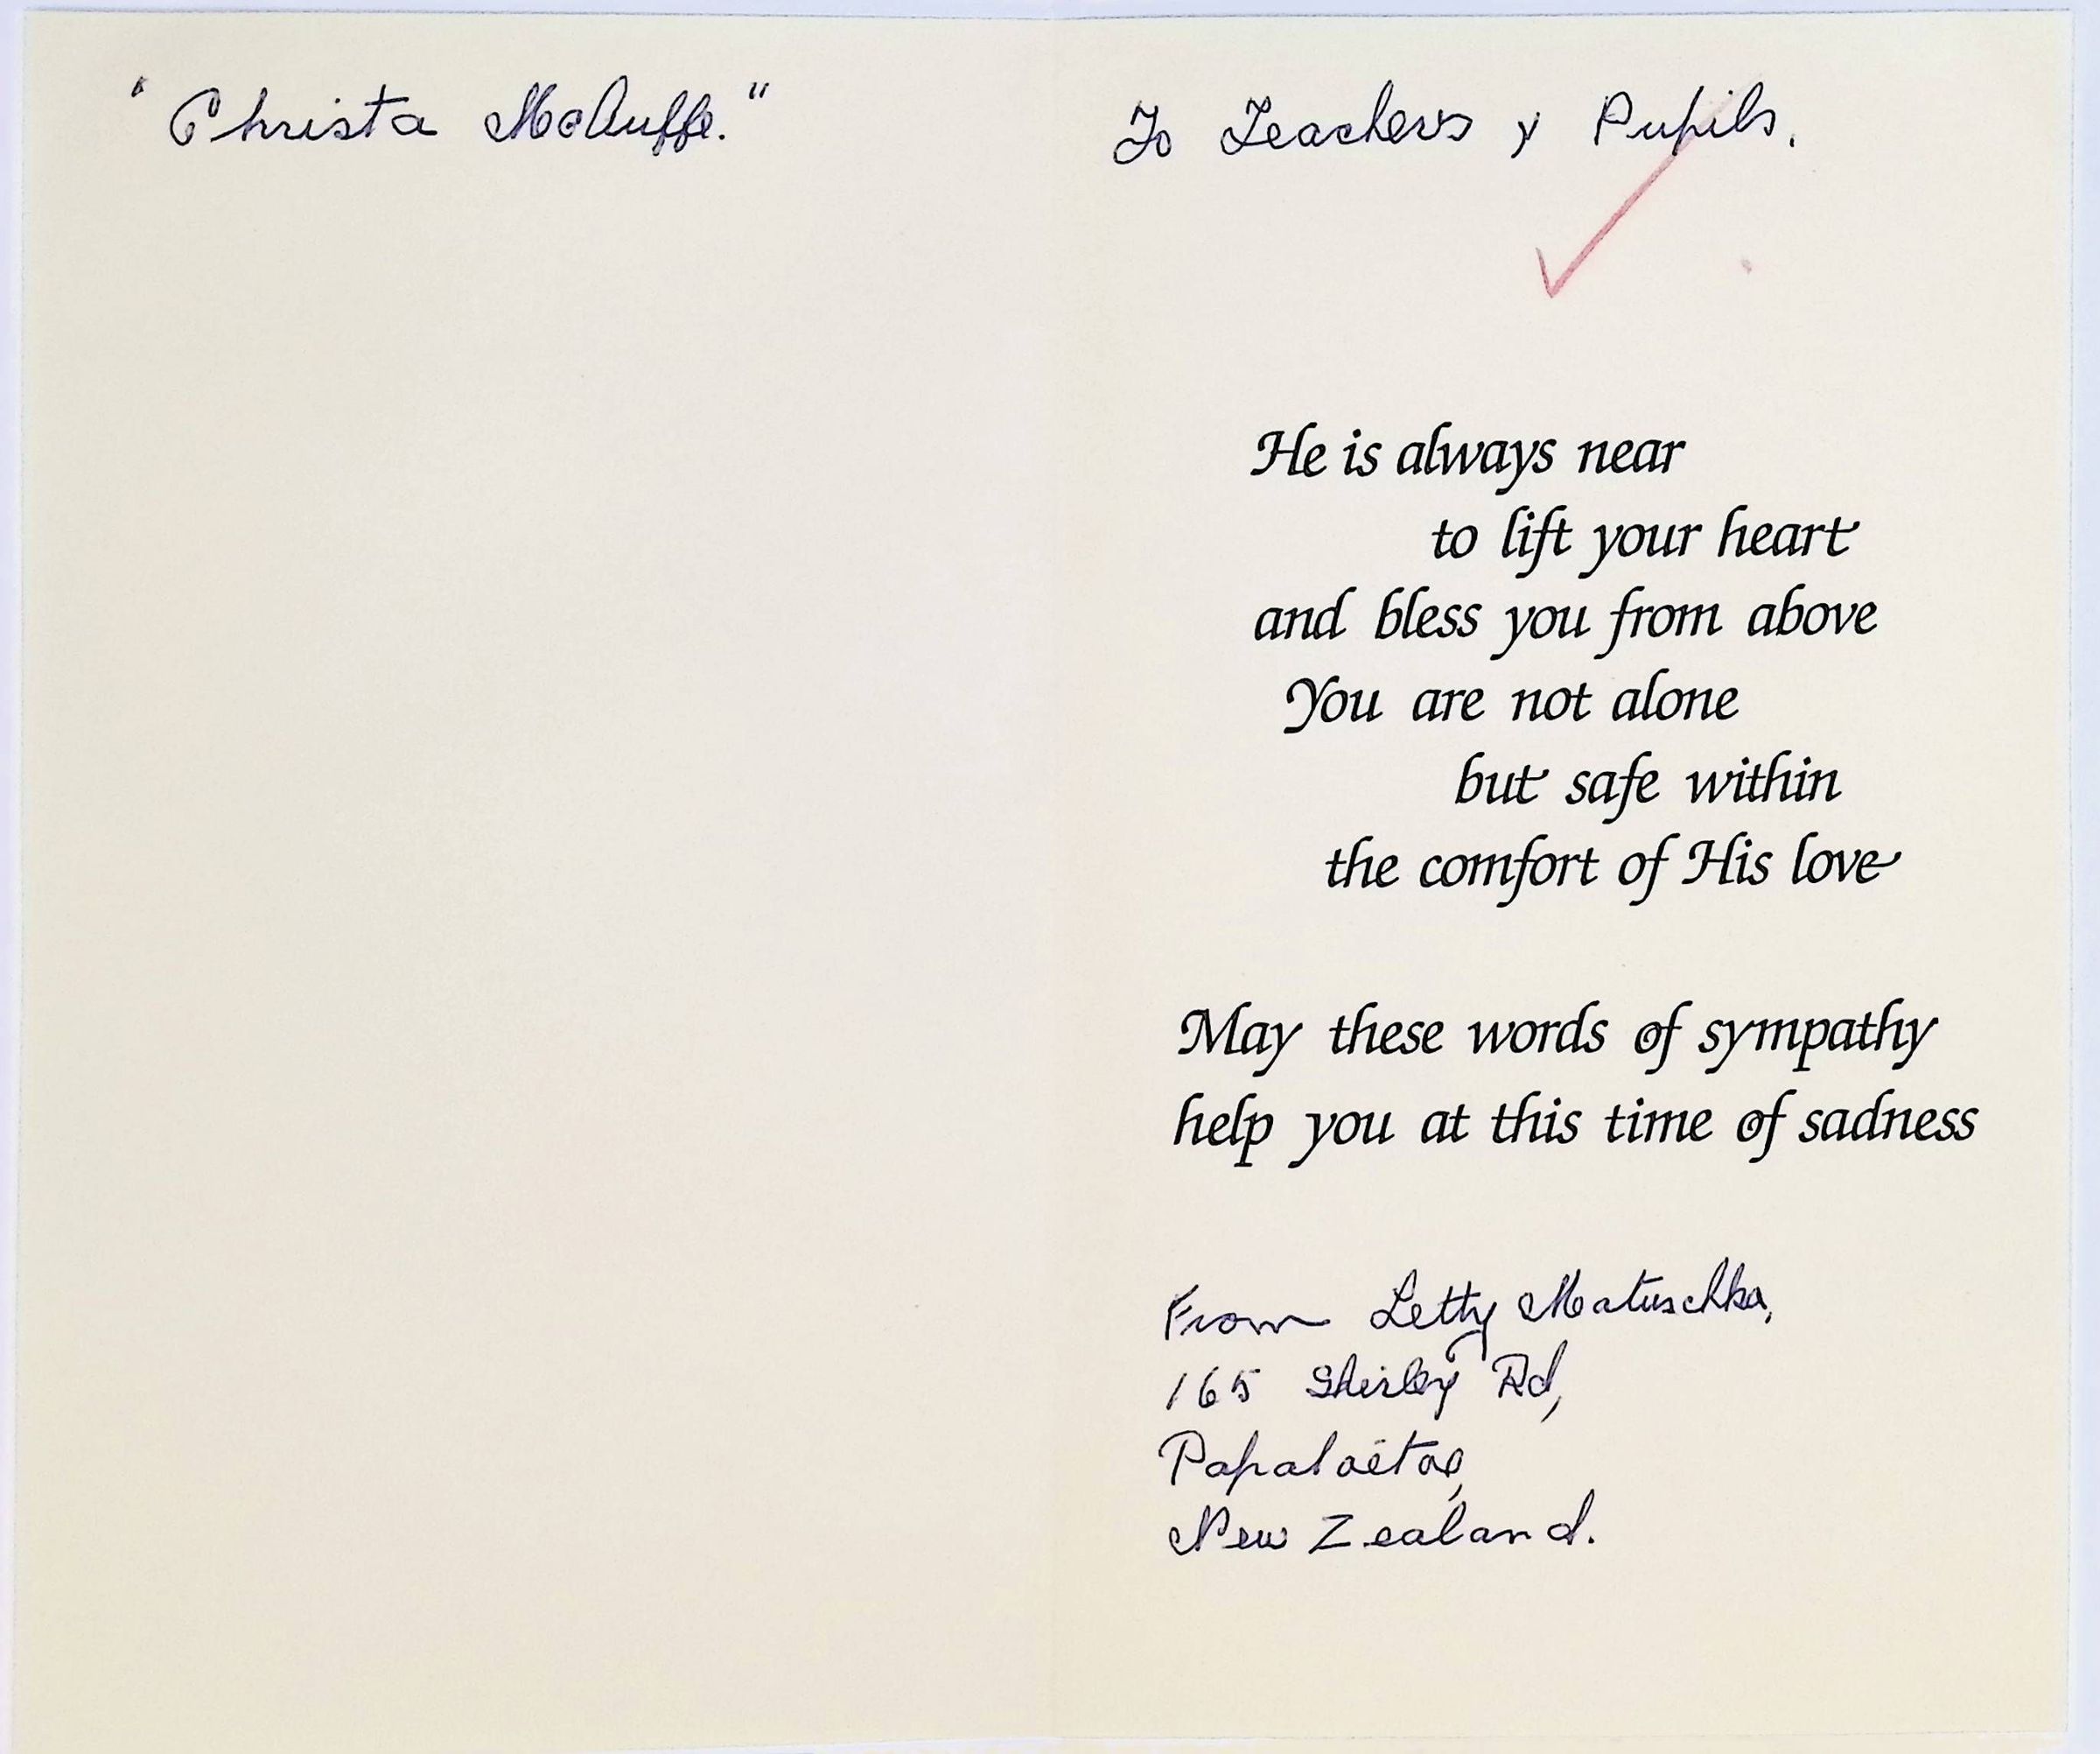 "Christa McAuffe."
To Teachers & Pupils.
He is always near
to lift your heart
and bless you from above
You are not alone
but safe within
the comfort of His love
May these words of sympathy
help you at this time of sadness
From Letty Matuschka,
165 Shirley Rd,
Papatoetoe,
New Zealand.